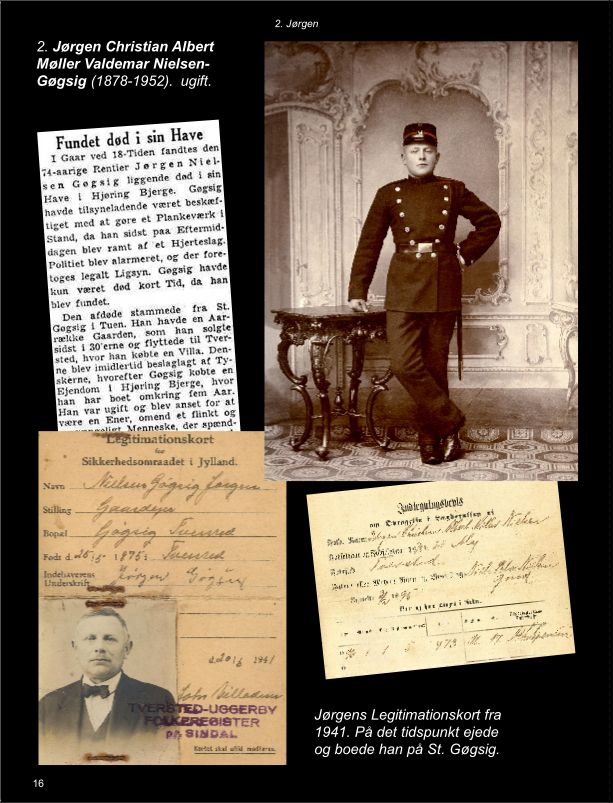 2. Jørgen
2. Jørgen Christian Albert
Møller Valdemar Nielsen-
Gøgsig (1878-1952). ugift.
Fundet død i sin Have
I Gaar ved 18-Tiden fandtes den
74-aarige Rentier Jørgen Niel-
sen Gøgsig liggende død i sin
Have i Hjøring Bjerge. Gøgsig
havde tilsyneladende været beskæf-
tiget med at gøre et Plankeværk i
Stand, da han sidst paa Eftermid-
dagen blev ramt af et Hjerteslag.
Politiet blev alarmeret, og der fore-
toges legalt Ligsyn. Gøgsig havde
kun været død kort Tid, da han
blev fundet.
Den afdøde stammede fra St.
Gøgsig i Tuen. Han havde en Aar-
række Gaarden, som han solgte
sidst i 30'erne og flyttede til Tver-
sted, hvor han købte en Villa. Den-
ne blev imidlertid beslaglagt af Ty-
skerne, hvorefter Gøgsig købte en
Ejendom i Hjøring Bjerge, hvor
han har boet omkring fem Aar.
Han var ugift og blev anset for at
være en Ener, omend et flinkt og
Menneske, der spænd-
Legitimationskort
for
Sikkerhedsomraadet i Jylland.
Navn Nielsen Gøgsig Jørgen
Stilling Gaardejer
Bopæl Gøgsig Tversted
Født d. 25/5 1875: Tversted
Indehaverens
Underskrift Jørgen Gøgsig
1941
TVERSTED-UGGERBY
FOLKEREGISTER
pr. SINDAL
Kortet skal altid medføres.
Indlægningsbevis
Jørgen Christian Albert Møller Nielsen
Maj
Tversted
Niels Peter Nielsen
973
Jørgens Legitimationskort fra
1941. På det tidspunkt ejede
og boede han på St. Gøgsig.
16